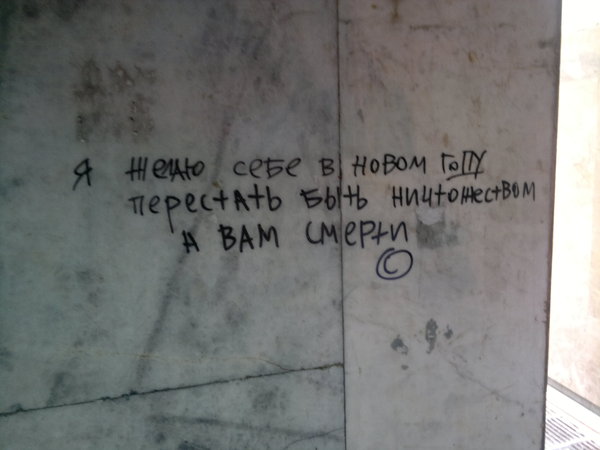 Я ЖЕЛАЮ СЕБЕ В НОВОМ ГОДУ
ПЕРЕСТАТЬ БЫТЬ НИЧТОЖЕСТВОМ
А ВАМ СМЕРТИ
©